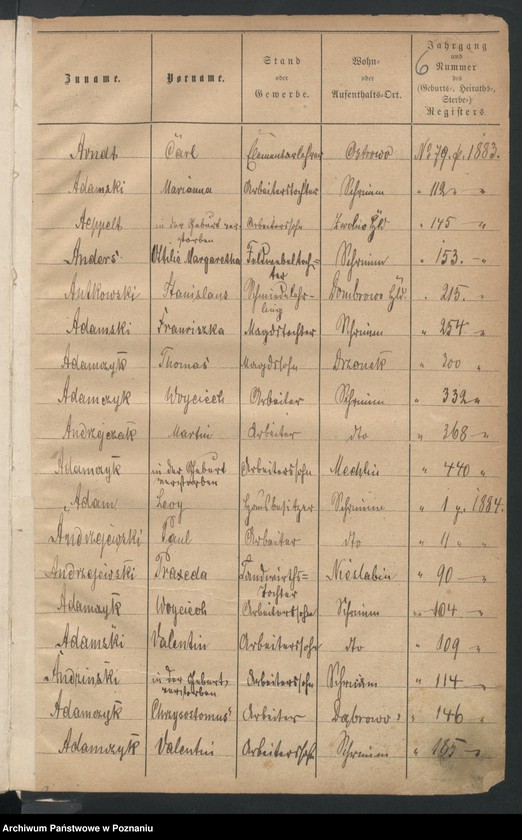 Zuname. Vorname. Stand oder Gewerbe. Wohn- oder Aufenthalts-Ort. Jahrgang und Nummer des (Geburts-, Heiraths-, Sterbe-) Registers.
6
Arndt Carl Elementarlehrer Ostrowo No 79. p. 1883.
Adamski Marianna Arbeiterstochter Schrimm " 112 " "
Aeppelt in der Geburt verstorben Arbeiterssohn Hld " 145 "
Anders Ottilie Margaretha Feldwebeltochter Schrimm " 153. "
Antkowski Stanislaus Schmiedelehrling Dombrowo Hld. " 215. "
Adamski Franciszka Magdtochter Schrimm " 254 "
Adamczyk Thomas Magdsohn Drzonek " 300 "
Adamczyk Woyciech Arbeiter Schrimm " 332 "
Andrzejczak Martin Arbeiter dto " 368 "
Adamczyk in der Geburt verstorben Arbeiterssohn Mechlin " 440 "
Adam Levy Hausbesitzer Schrimm " 1 p. 1884.
Andrzejewski Paul Arbeiter dto " 11 "
Andrzejewski Praxeda Landwirthstochter Nieslabin " 90 "
Adamczyk Woyciech Arbeiterssohn Schrimm " 104 "
Adamski Valentin Arbeiterssohn dto " 109 "
Andzinski in der Geburt verstorben Arbeiterssohn Schrimm " 114 "
Adamczyk Chrysostomus Arbeiter Dąbrowo " 146 "
Adamczyk Valentin Arbeiterssohn Schrimm " 165 "
Archiwum Państwowe w Poznaniu